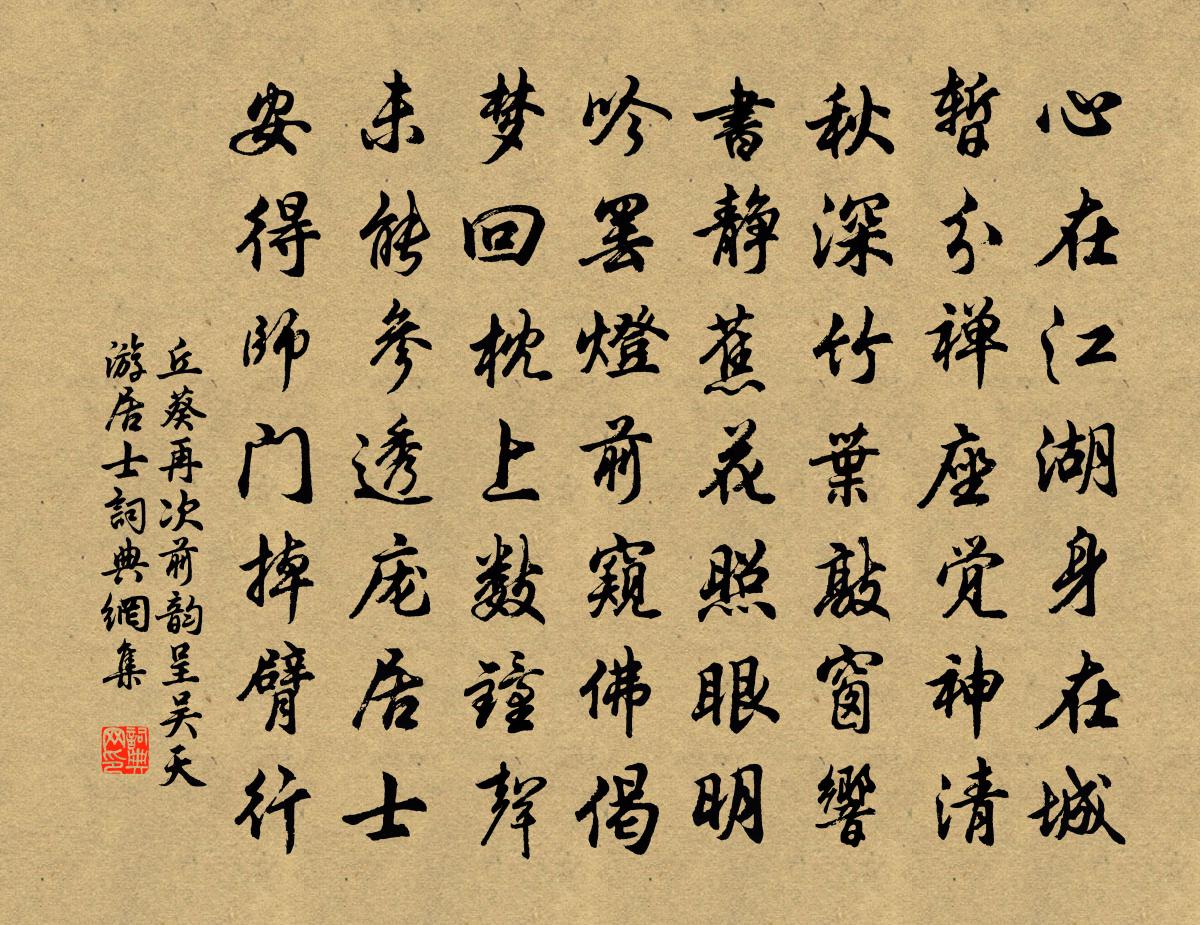 心在江湖身在城
暂分禅座觉神清
秋深竹葉敲窗響
書静蕉花照眼明
吟罢燈前窺佛偈
梦回枕上数鐘聲
未能参透庞居士
安得师门掉臂行
丘葵再次前韵呈吴天
游居士詞典網集
詞典
网印